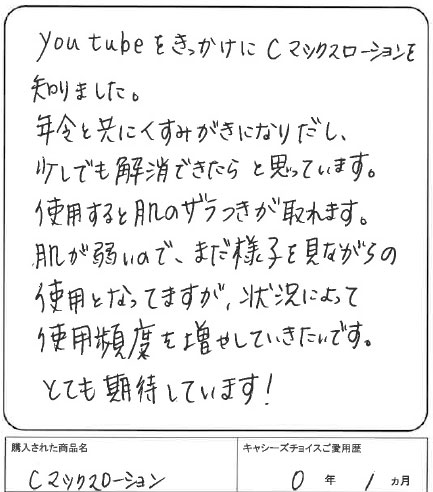 youtubeをきっかけにCマックスローションを
知りました。
年令と共にくすみがきになりだし、
少しでも解消できたらと思っています。
使用すると肌のザラつきが取れます。
肌が弱いので、まだ様子を見ながらの
使用となってますが、状況によって
使用頻度を増やしていきたいです。
とても期待しています!
購入された商品名 キャシーズチョイスご愛用歴
Cマックスローション 0 年 1 ヵ月